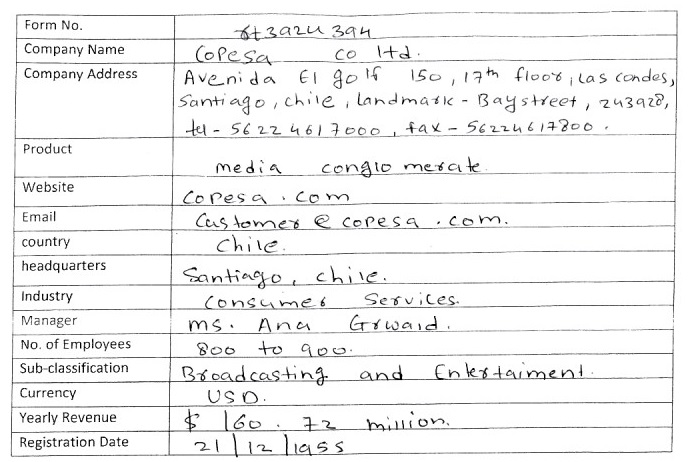 Form No. rt3924394
Company Name Copesa co ltd.
Company Address Avenida El golf 150, 17th floor, Las condes,
Santiago, chile, landmark - Baystreet, 243928,
tel - 56 22 461 7000, fax - 56224617800.
Product media conglomerate
Website Copesa.com
Email Customer@copesa.com.
country Chile.
headquarters Santiago, chile.
Industry Consumer Services.
Manager ms. Ana Grwaid.
No. of Employees 800 to 900.
Sub-classification Broadcasting and Entertaiment.
Currency USD.
Yearly Revenue $ 160.72 million.
Registration Date 21/12/1955